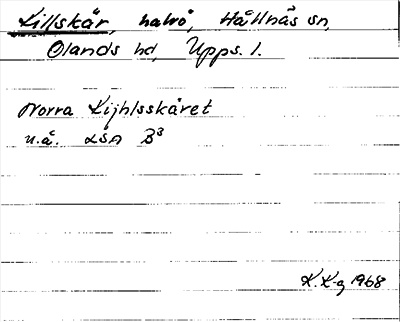 Killskär, halvö, Hållnäs sn,
Olands hd, Upps. l.
Norra Kijhlsskäret
u.å. LSA B3
K. K-g 1968